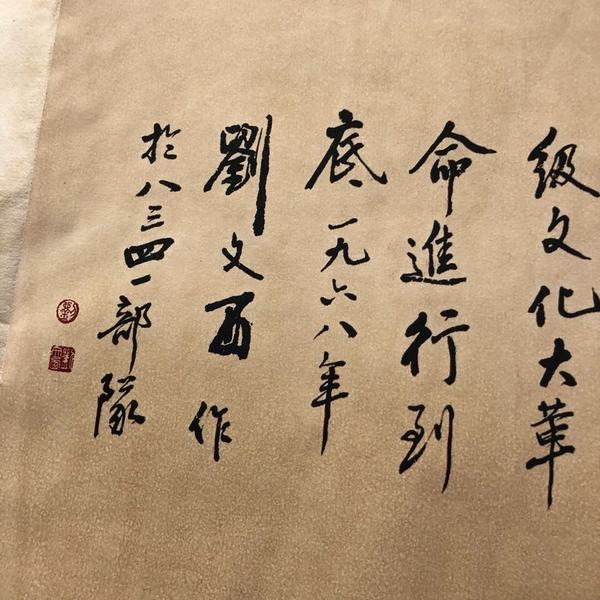 级文化大革
命進行到
底一九六八年
劉文西作
於八三四一部隊